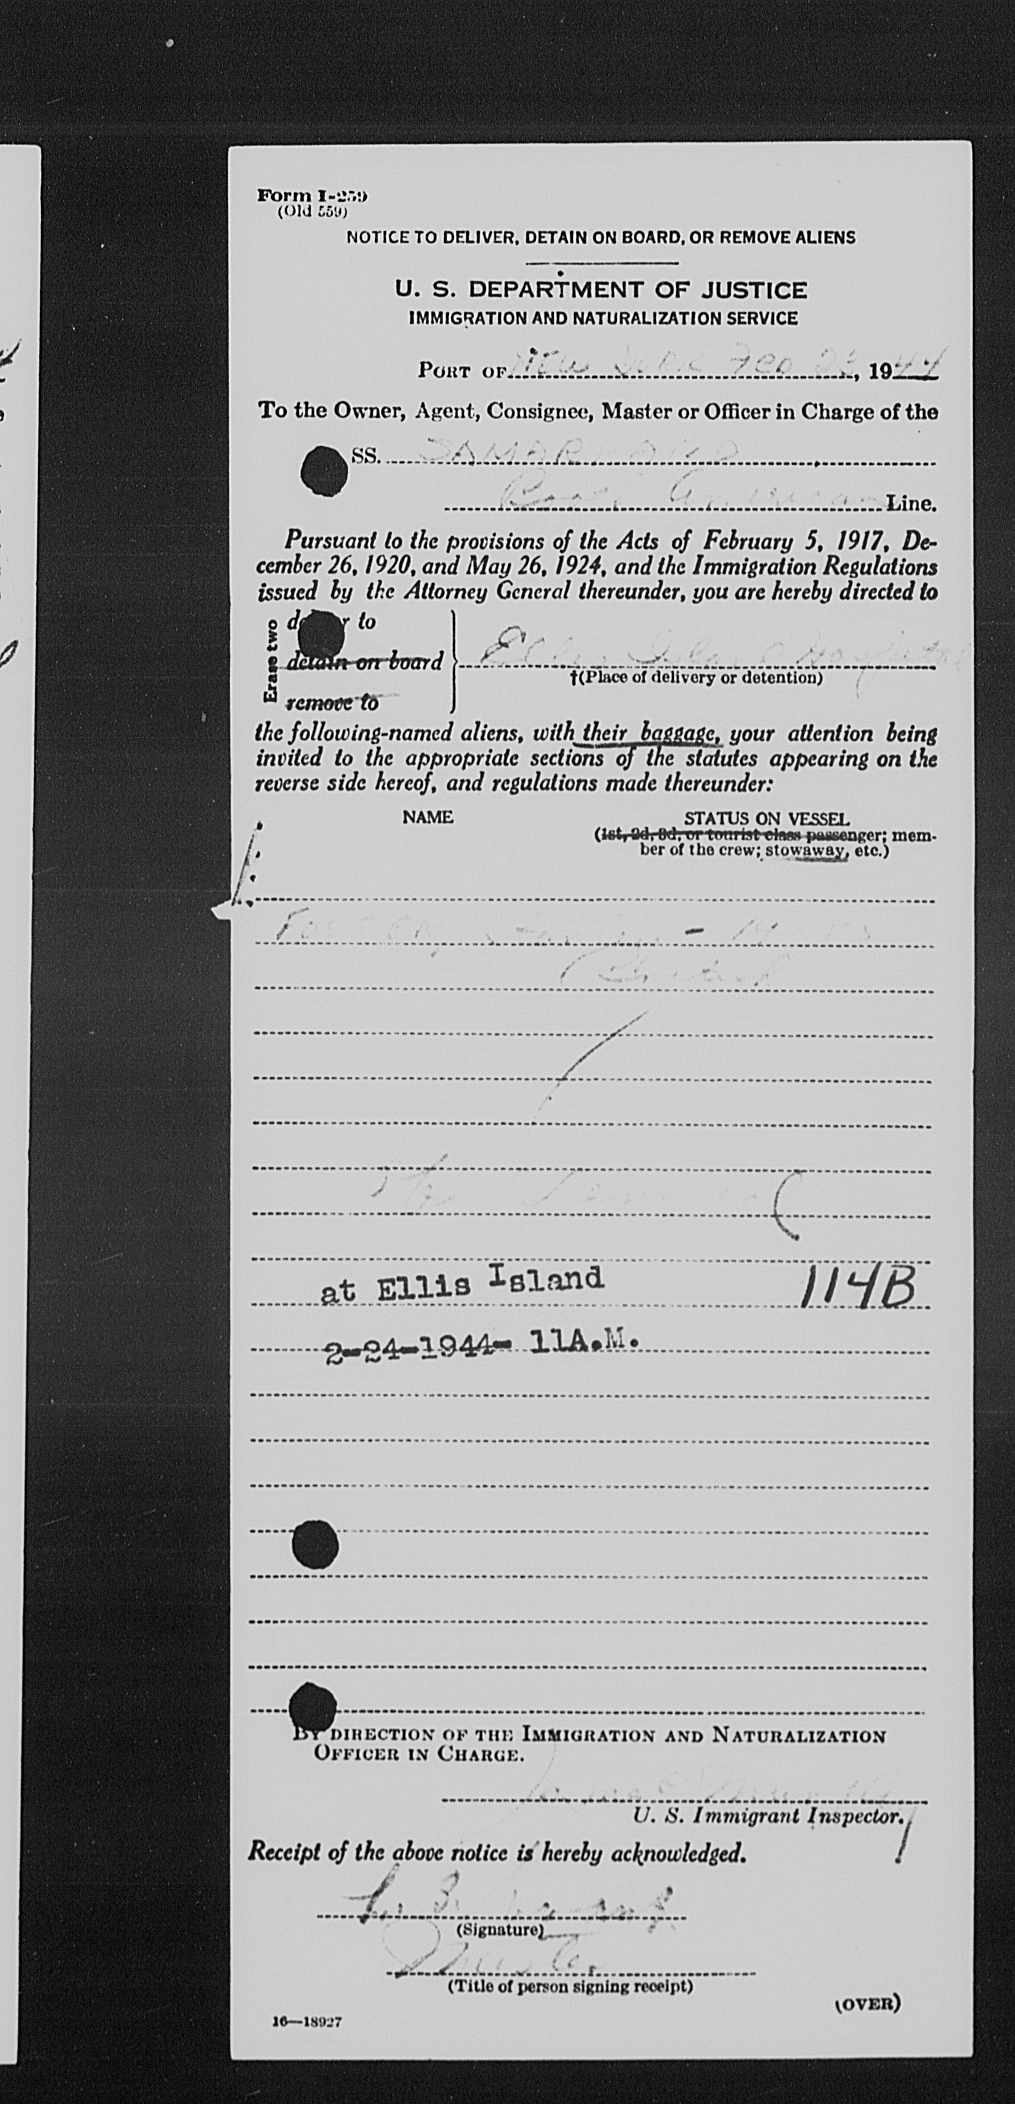 Form I-259
(Old 559)
NOTICE TO DELIVER, DETAIN ON BOARD, OR REMOVE ALIENS
U. S. DEPARTMENT OF JUSTICE
IMMIGRATION AND NATURALIZATION SERVICE
PORT OF New York Feb 23, 1944
To the Owner, Agent, Consignee, Master or Officer in Charge of the
SS. SAMARKAND
American Line.
Pursuant to the provisions of the Acts of February 5, 1917, De-
cember 26, 1920, and May 26, 1924, and the Immigration Regulations
issued by the Attorney General thereunder, you are hereby directed to
Erase two
to
detain on board
Ellis Island Hospital
†(Place of delivery or detention)
remove to
the following-named aliens, with their baggage, your attention being
invited to the appropriate sections of the statutes appearing on the
reverse side hereof, and regulations made thereunder:
NAME STATUS ON VESSEL
(1st, 2d, 3d, or tourist class passenger; mem-
ber of the crew; stowaway, etc.)
at Ellis Island 114B
2-24-1944- 11A.M.
BY DIRECTION OF THE IMMIGRATION AND NATURALIZATION
OFFICER IN CHARGE.
U. S. Immigrant Inspector.
Receipt of the above notice is hereby acknowledged.
(Signature)
Master
(Title of person signing receipt)
(OVER)
16—18927